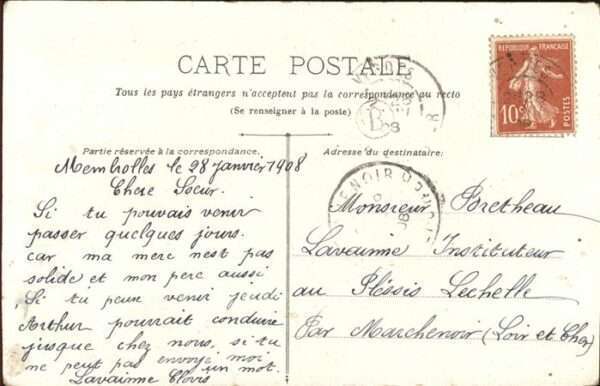 CARTE POSTALE
Tous les pays étrangers n'acceptent pas la correspondance au recto
(Se renseigner à la poste)
REPUBLIQUE FRANÇAISE
10c
POSTES
B
Partie réservée à la correspondance.
Membrolles le 28 janvier 1908
Chere Soeur.
Si tu pouvais venir
passer quelques jours.
car ma mere n'est pas
solide et mon pere aussi
Si tu peux venir jeudi
Arthur pourrait conduire
jusque chez nous, si tu
ne peut pas envoyé moi
un mot.
Lavainne Clovis
Adresse du destinataire.
Monsieur Bretheau
Lavainne Instituteur
au Pléssis Lechelle
Par Marchenoir (Loir et Cher)